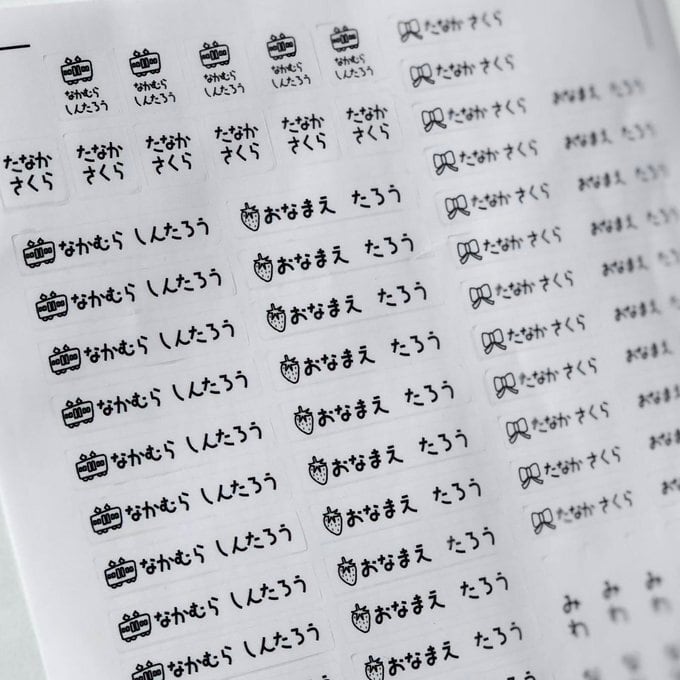 なかむら
しんたろう
なかむら
しんたろう
なかむら
しんたろう
なかむら
しんたろう
なかむら
しんたろう
たなか
さくら
たなか
さくら
たなか
さくら
たなか
さくら
たなか
さくら
たなか
さくら
なかむら しんたろう
なかむら しんたろう
なかむら しんたろう
なかむら しんたろう
なかむら しんたろう
なかむら しんたろう
なかむら しんたろう
なかむら しんたろう
なかむら しんたろう
おなまえ たろう
おなまえ たろう
おなまえ たろう
おなまえ たろう
おなまえ たろう
おなまえ たろう
おなまえ たろう
おなまえ たろう
おなまえ たろう
おなまえ たろう
たなか さくら
たなか さくら
たなか さくら
たなか さくら
たなか さくら
たなか さくら
たなか さくら
たなか さくら
たなか さくら
たなか さくら
たなか さくら
たなか さくら
おなまえ たろう
おなまえ たろう
おなまえ たろう
おなまえ たろう
おなまえ
おなまえ
おなまえ
みわ
みわ
みわ